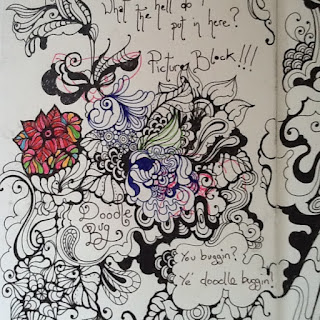 What the hell do I
put in here?
Picture Block!!!
Doodle
Bug
You buggin?
Ye' doodle buggin!